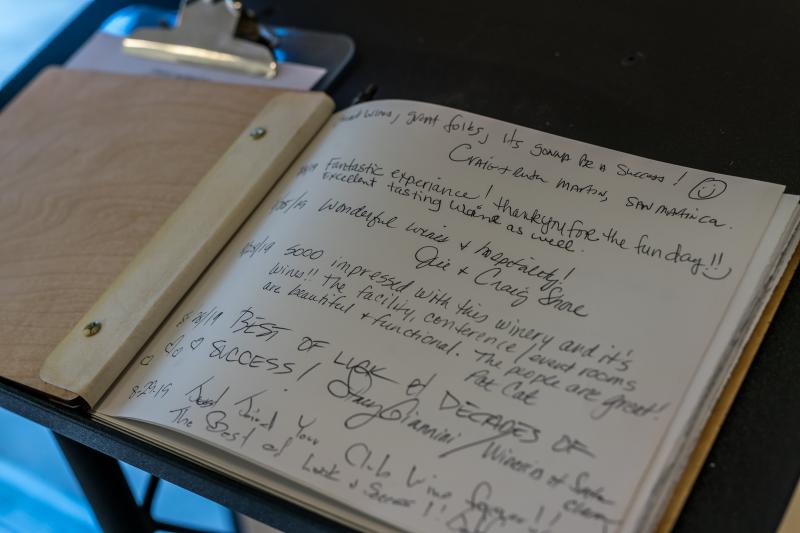 wines, great folks, its gonna be a success! ☺
Craig + Ruth Martin, San Martin ca.
Fantastic experience! thank you for the fun day!!
Excellent tasting as well.
Wonderful wines + hospitality!
+ Craig Shore
8/24/19 Sooo impressed with this winery and it's
wines!! The facility, conference/event rooms
are beautiful + functional. The people are great!
Pat Cat
8-28/19 BEST OF LUCK & DECADES OF
SUCCESS! Giannini / Wineries of Santa
Clara
8-29-19 Find Your Club Wine
The Best of Luck &